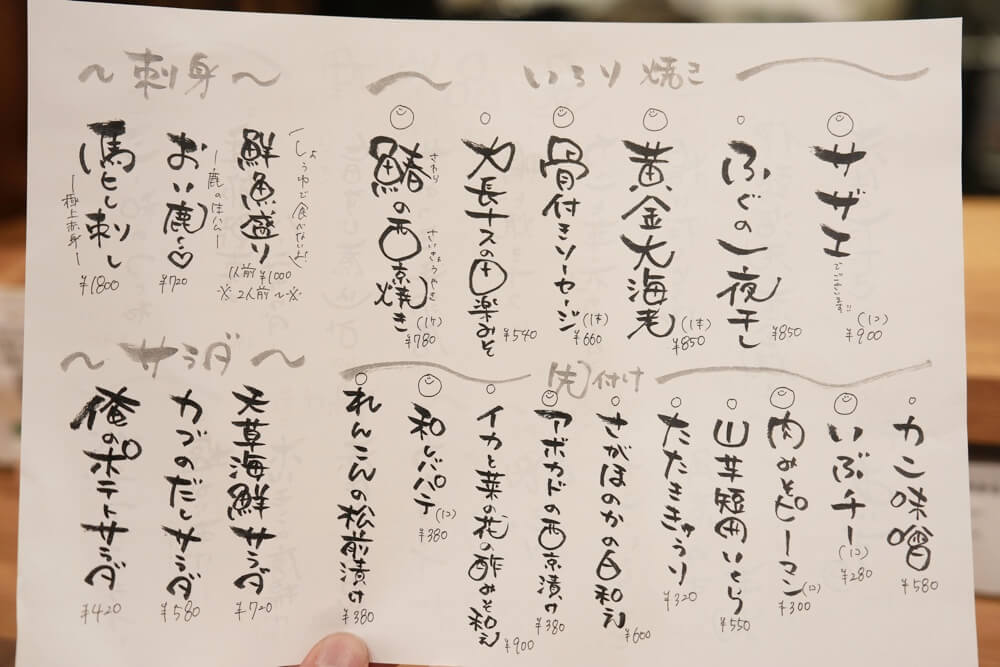 いろり焼き
サザエ
でっかいです!!
(1コ)
¥900
ふぐの一夜干し
¥850
黄金大海老
(1本)
¥850
骨付きソーセージ
(1本)
¥660
力長ナスの田楽みそ
¥540
鰆の西京焼き
さわら
さいきょうやき
(1ヶ)
¥780
〜刺身〜
(しょうゆで食べないよ)
鮮魚盛り
1人前 ¥1000
※2人前〜※
おい鹿〜♡
ー鹿の生ハムー
¥720
馬とし刺し
ー極上赤身ー
¥1800
先付け
カニ味噌
¥580
いぶチー
(1コ)
¥280
肉みそピーマン
(1コ)
¥300
山芋短冊いくら
¥550
たたききゅうり
¥320
さがほのかの白和え
¥600
アボカドの西京漬け
¥380
イカと菜の花の酢みそ和え
¥900
和レバパテ
(1コ)
¥380
れんこんの松前漬け
¥380
〜サラダ〜
天草海鮮サラダ
¥720
カブのだしサラダ
¥580
俺のポテトサラダ
¥420